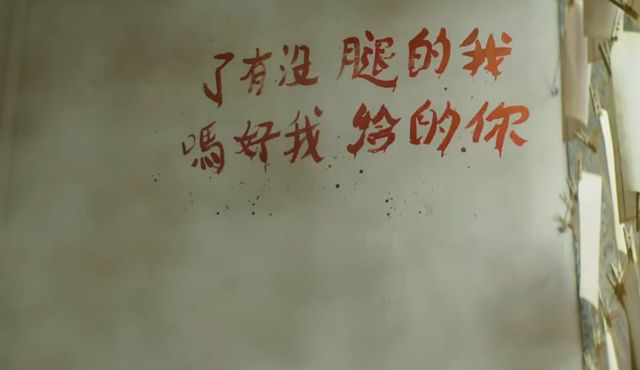 我的腿 沒有了
你的給我好嗎